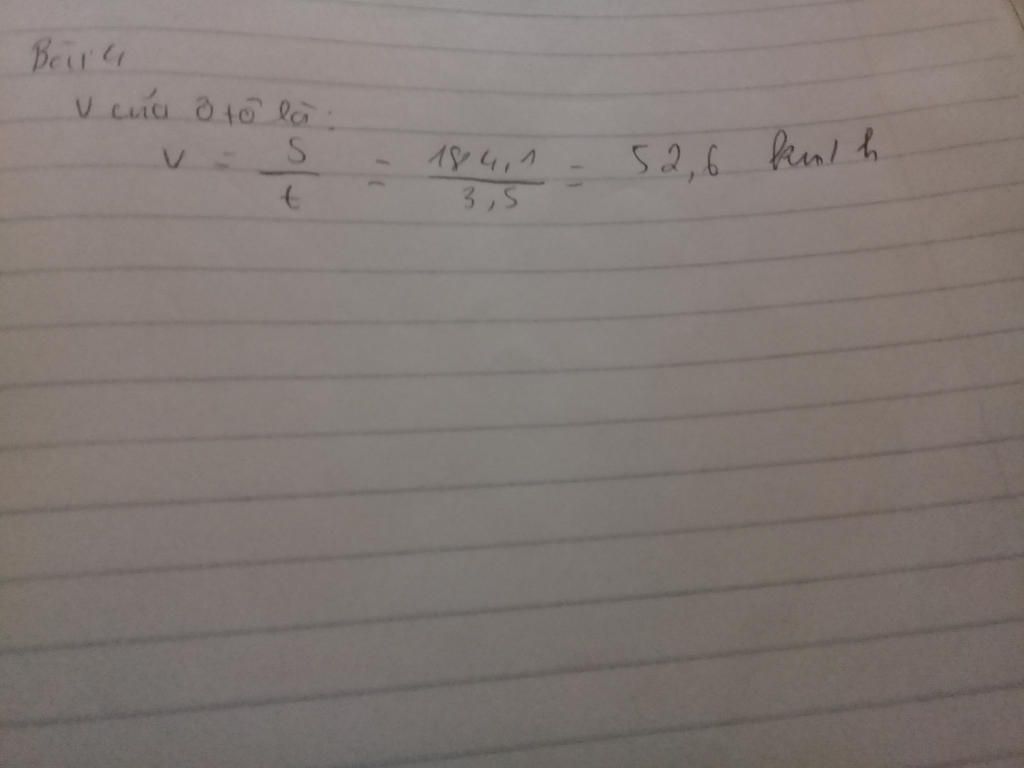 Bài 4
V của ô tô là:
v = S / t = 184,1 / 3,5 = 52,6 km/h